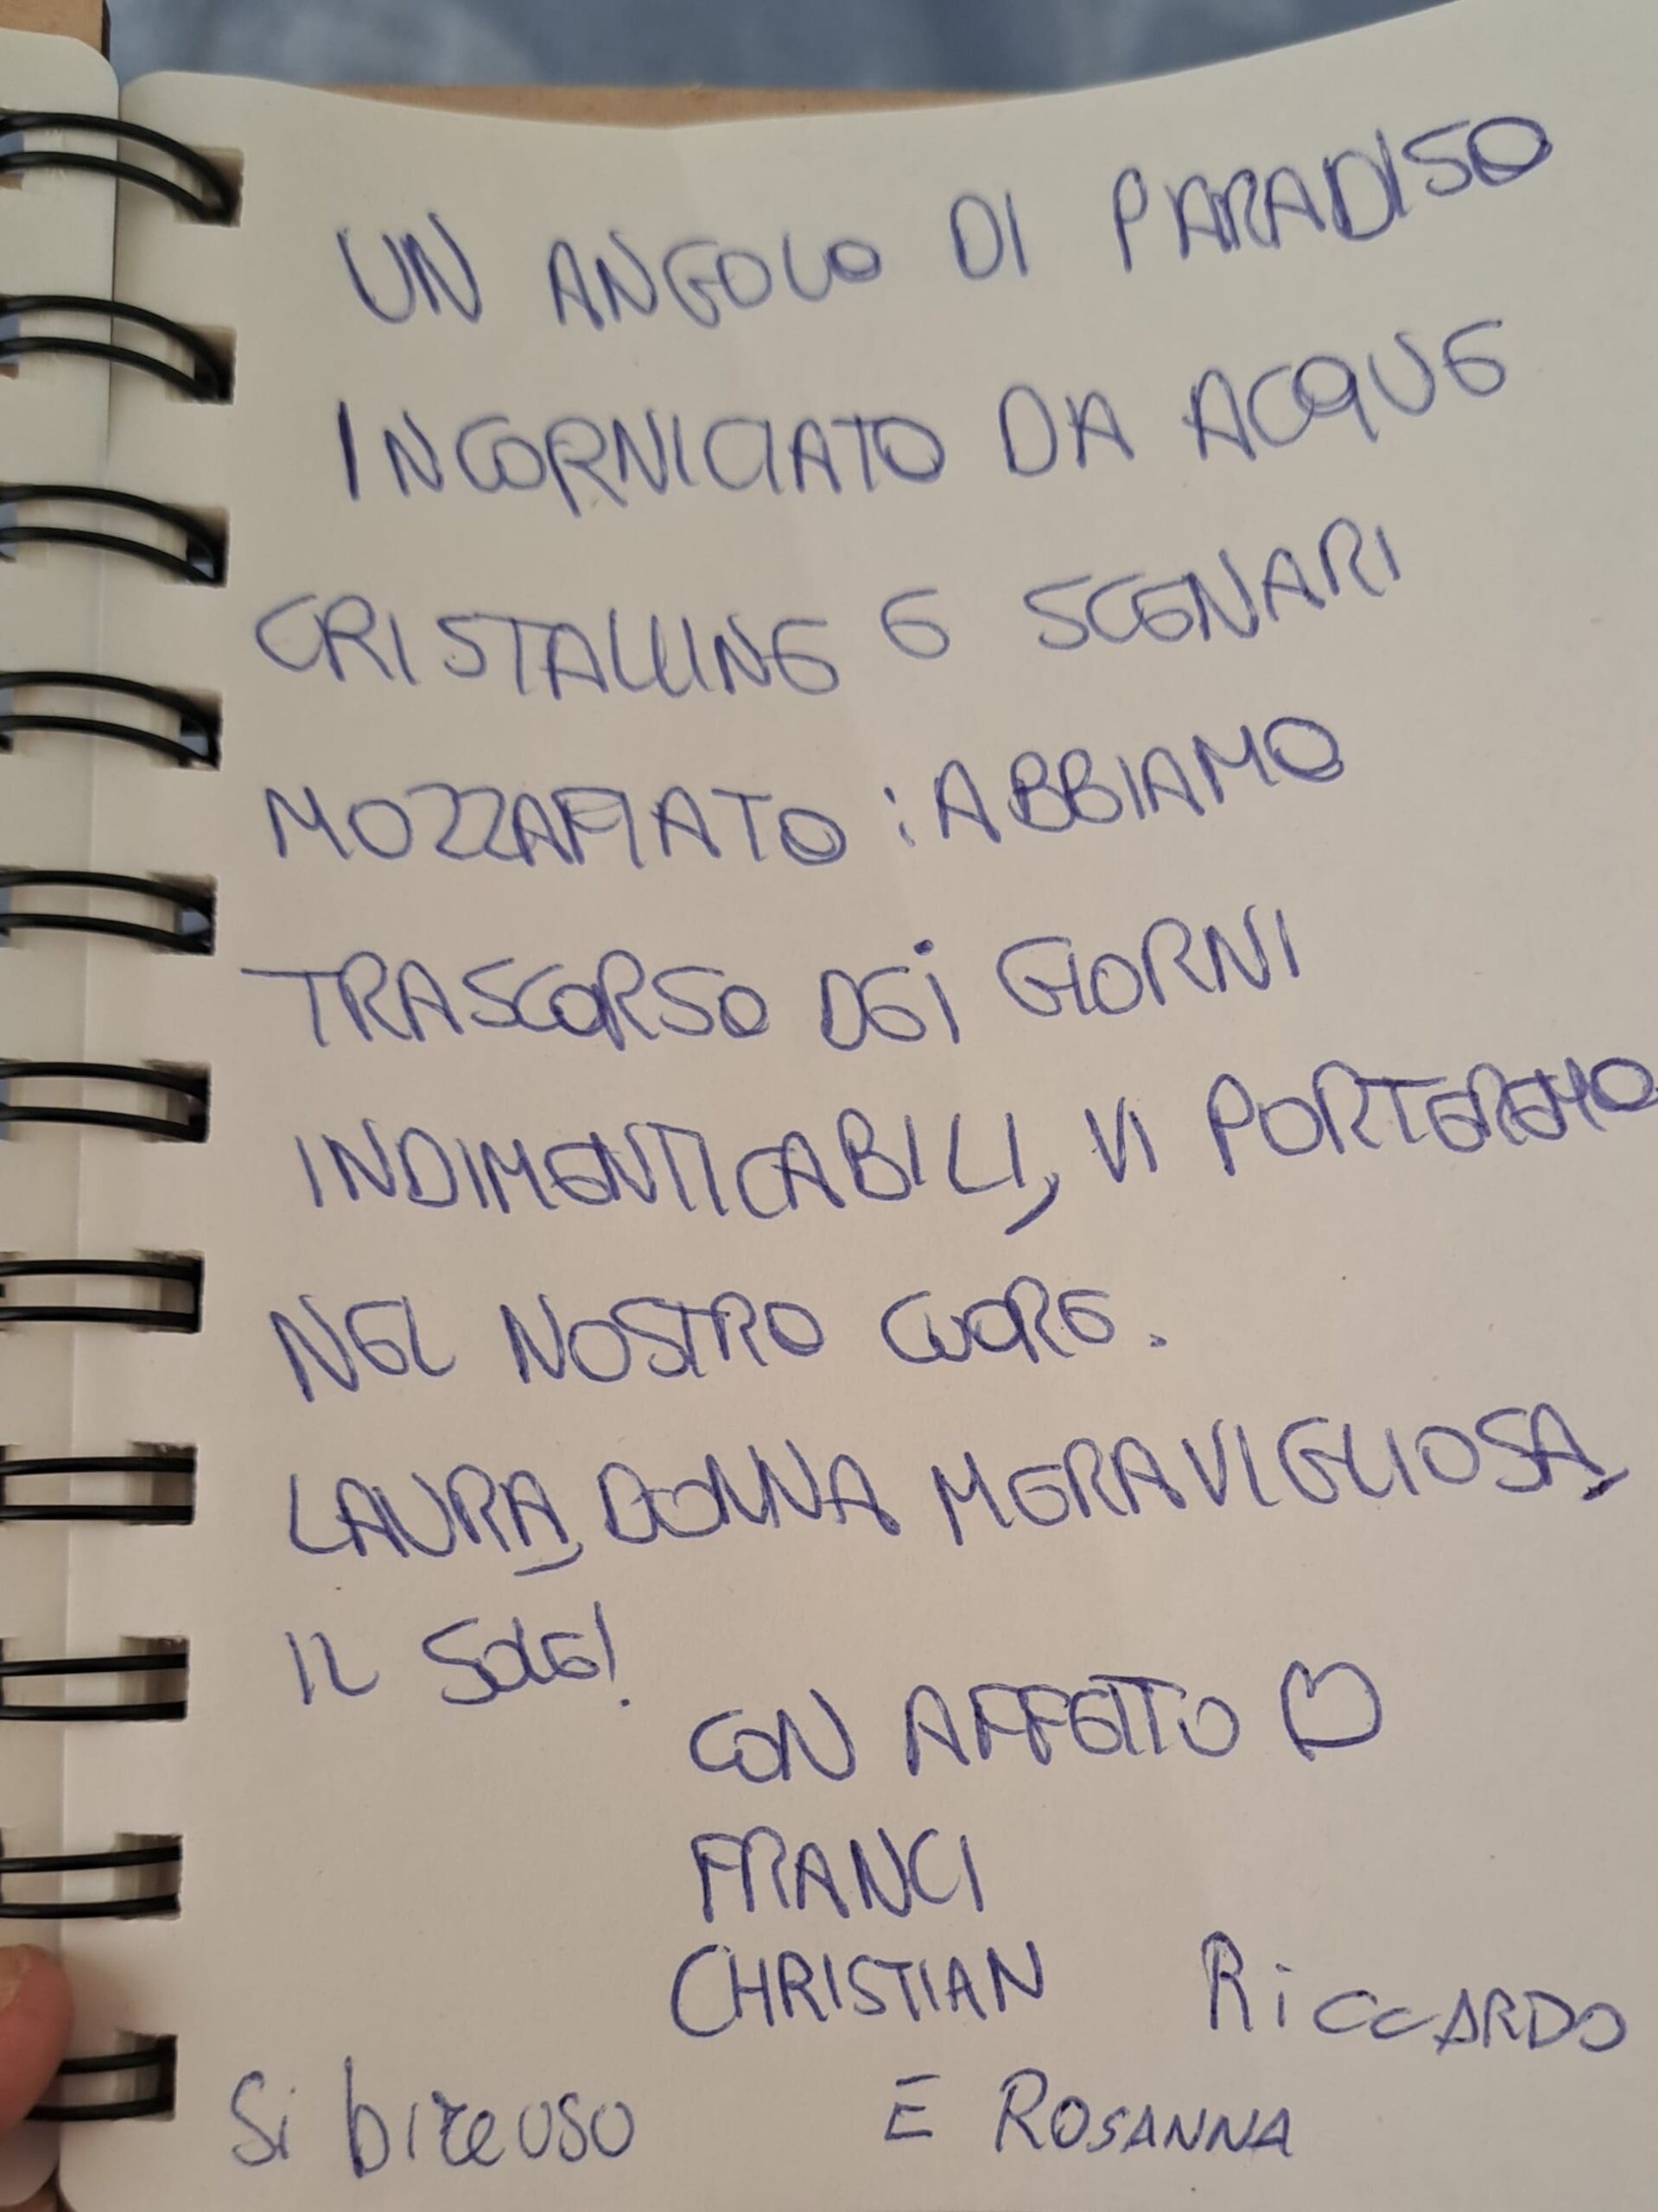 UN ANGOLO DI PARADISO
INCORNICIATO DA ACQUE
CRISTALLINE E SCENARI
MOZZAFIATO : ABBIAMO
TRASCORSO DEI GIORNI
INDIMENTICABILI, VI PORTEREMO
NEL NOSTRO CUORE.
LAURA, DONNA MERAVIGLIOSA,
IL SOLE!
CON AFFETTO ♡
FRANCI
CHRISTIAN RiCCARDO
Si E ROSANNA